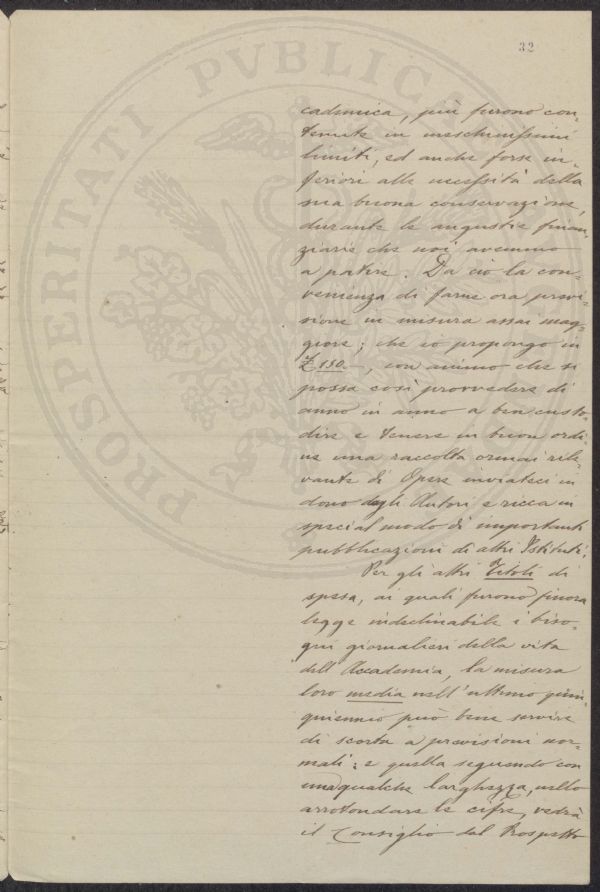 32
PROSPERITATI PVBLICAE
cademica, più furono con-
tenute in meschinissimi
limiti, ed anche forse in-
feriori alle necessità della
sua buona conservazione,
durante le angustie finan-
ziarie che noi avemmo
a patire. Da ciò la con-
venienza di farne ora previ-
sione in misura assai mag-
giore; che io propongo in
£ 150.-, con animo che si
possa così provvedere di
anno in anno a ben custo-
dire e tenere in buon ordi-
ne una raccolta ormai rile-
vante di Opere inviateci in
dono dagli Autori e ricca in
special modo di importanti
pubblicazioni di altri Istituti.
Per gli altri Titoli di
spesa, ai quali furono finora
legge indeclinabile i biso-
gni giornalieri della vita
dell'Accademia, la misura
loro media nell'ultimo quin-
quiennio può bene servire
di scorta a previsioni nor-
mali: e quella seguendo con
una qualche larghezza, nello
arrotondare le cifre, vedrà
il Consiglio dal Prospetto